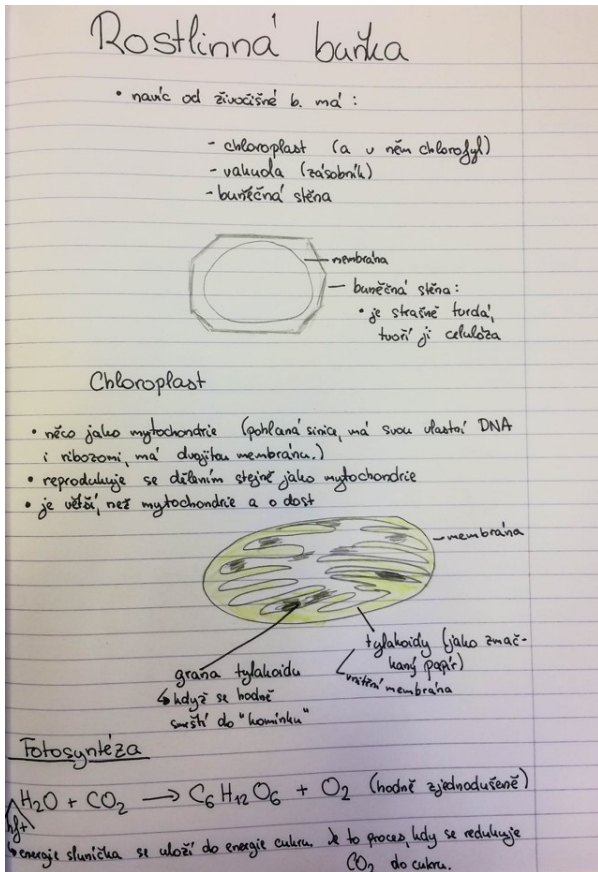 Rostlinná buňka
• navíc od živočišné b. má :
- chloroplast (a v něm chlorofyl)
- vakuola (zásobník)
- buněčná stěna
membrána
buněčná stěna :
• je strašně tvrdá,
tvoří ji celulóza
Chloroplast
• něco jako mytochondrie (pohlaná sinice, má svou vlastní DNA
i ribozomi, má dvojitou membránu.)
• reprodukuje se dělením stejně jako mytochondrie
• je větší, než mytochondrie a o dost
membrána
tylakoidy (jako zmač-
kaný papír)
vnitřní membrána
grana tylakoidu
↳ když se hodně
smrští do "komínku"
Fotosyntéza
H2O + CO2 → C6H12O6 + O2 (hodně zjednodušeně)
↳ energie sluníčka se uloží do energie cukru. Je to proces, kdy se redukuje
CO2 do cukru.